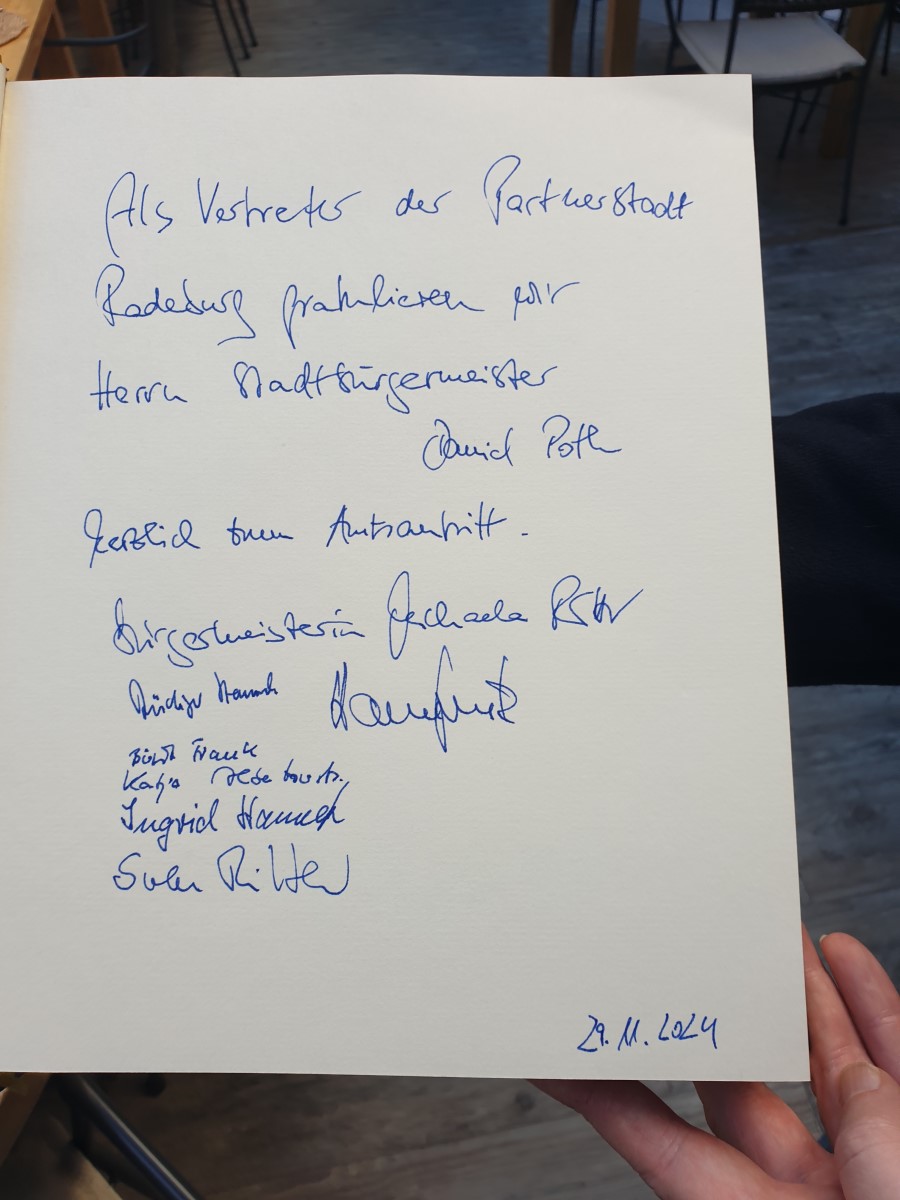 Als Vertreter der Partnerstadt
Radeburg gratulieren wir
Herrn Stadtbürgermeister
David Poth
herzlich zum Amtsantritt.
Bürgermeisterin Michaela Ritter
Rüdiger
Frank
Katja
Ingrid
Sven Ritter
29.11.2024